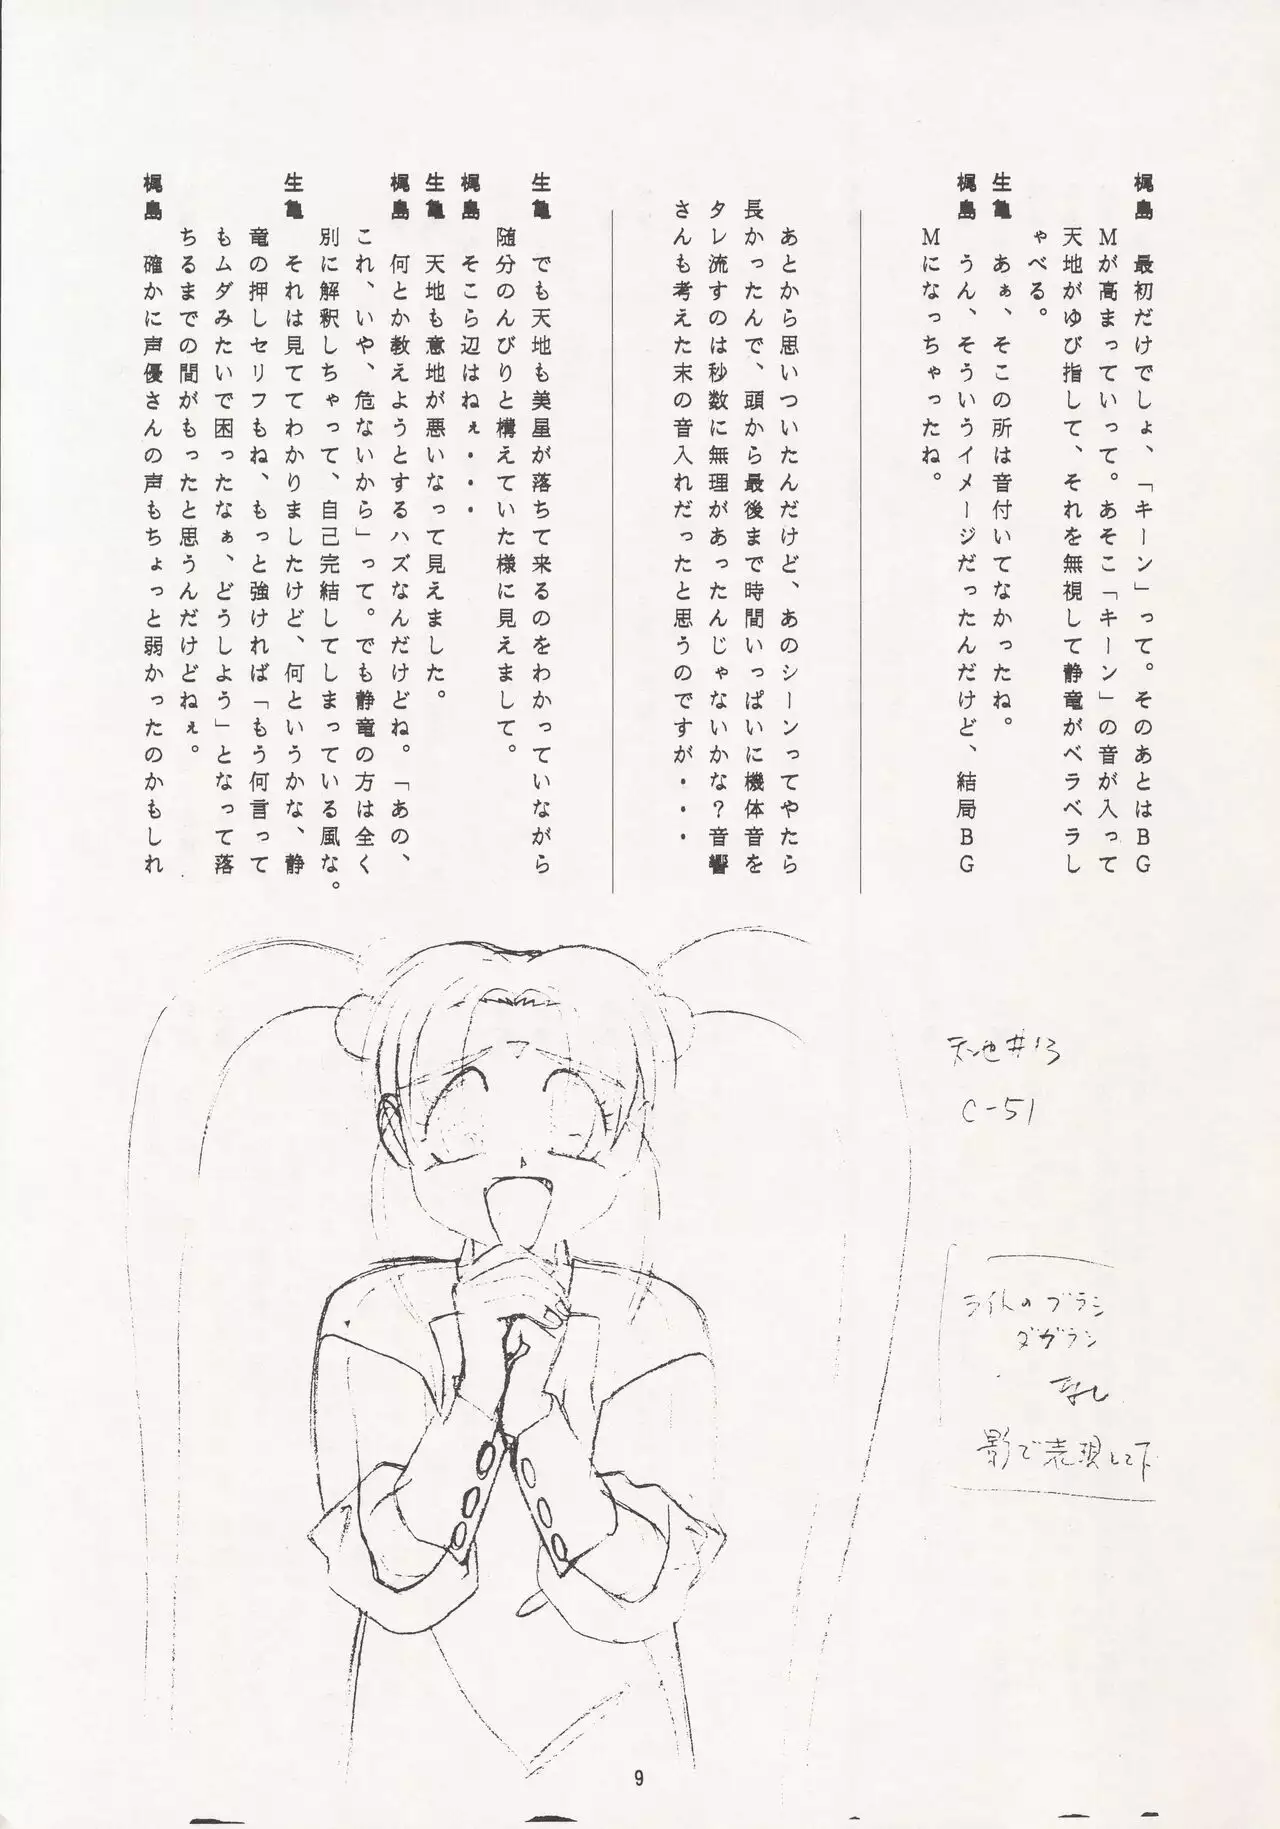 梶島　最初だけでしょ、「キーン」って。そのあとはＢＧ
Ｍが高まっていって。あそこ「キーン」の音が入って
天地がゆび指して、それを無視して静竜がベラベラし
ゃべる。
生亀　あぁ、そこの所は音付いてなかったね。
梶島　うん、そういうイメージだったんだけど、結局ＢＧ
Ｍになっちゃったね。
あとから思いついたんだけど、あのシーンってやたら
長かったんで、頭から最後まで時間いっぱいに機体音を
タレ流すのは秒数に無理があったんじゃないかな？音響
さんも考えた末の音入れだったと思うのですが・・・
生亀　でも天地も美星が落ちて来るのをわかっていながら
随分のんびりと構えていた様に見えまして。
梶島　そこら辺はねぇ・・・
生亀　天地も意地が悪いなって見えました。
梶島　何とか教えようとするハズなんだけどね。「あの、
これ、いや、危ないから」って。でも静竜の方は全く
別に解釈しちゃって、自己完結してしまっている風な。
生亀　それは見ててわかりましたけど、何というかな、静
竜の押しセリフもね、もっと強ければ「もう何言って
もムダみたいで困ったなぁ、どうしよう」となって落
ちるまでの間がもったと思うんだけどねぇ。
梶島　確かに声優さんの声もちょっと弱かったのかもしれ
天地#13
C-51
ライトのブラシ
ダブラシ
なし
影で表現して下
9